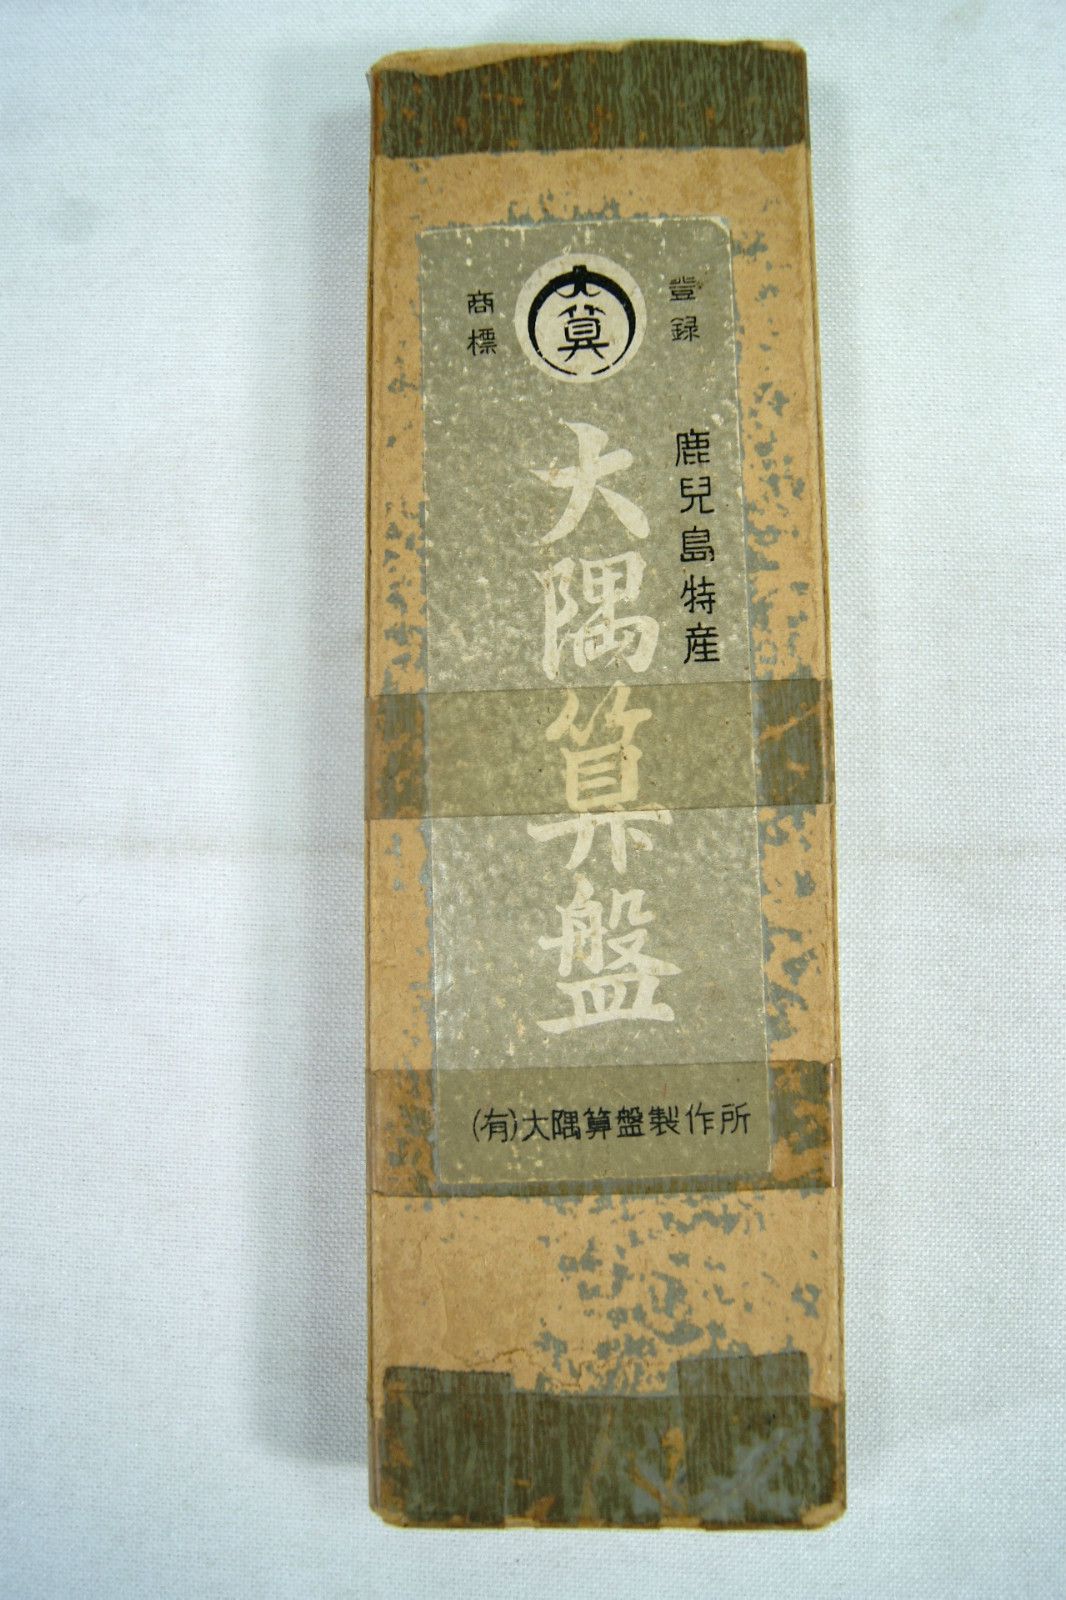 登録
大算
商標
鹿兒島特産
大隅算盤
(有)大隅算盤製作所